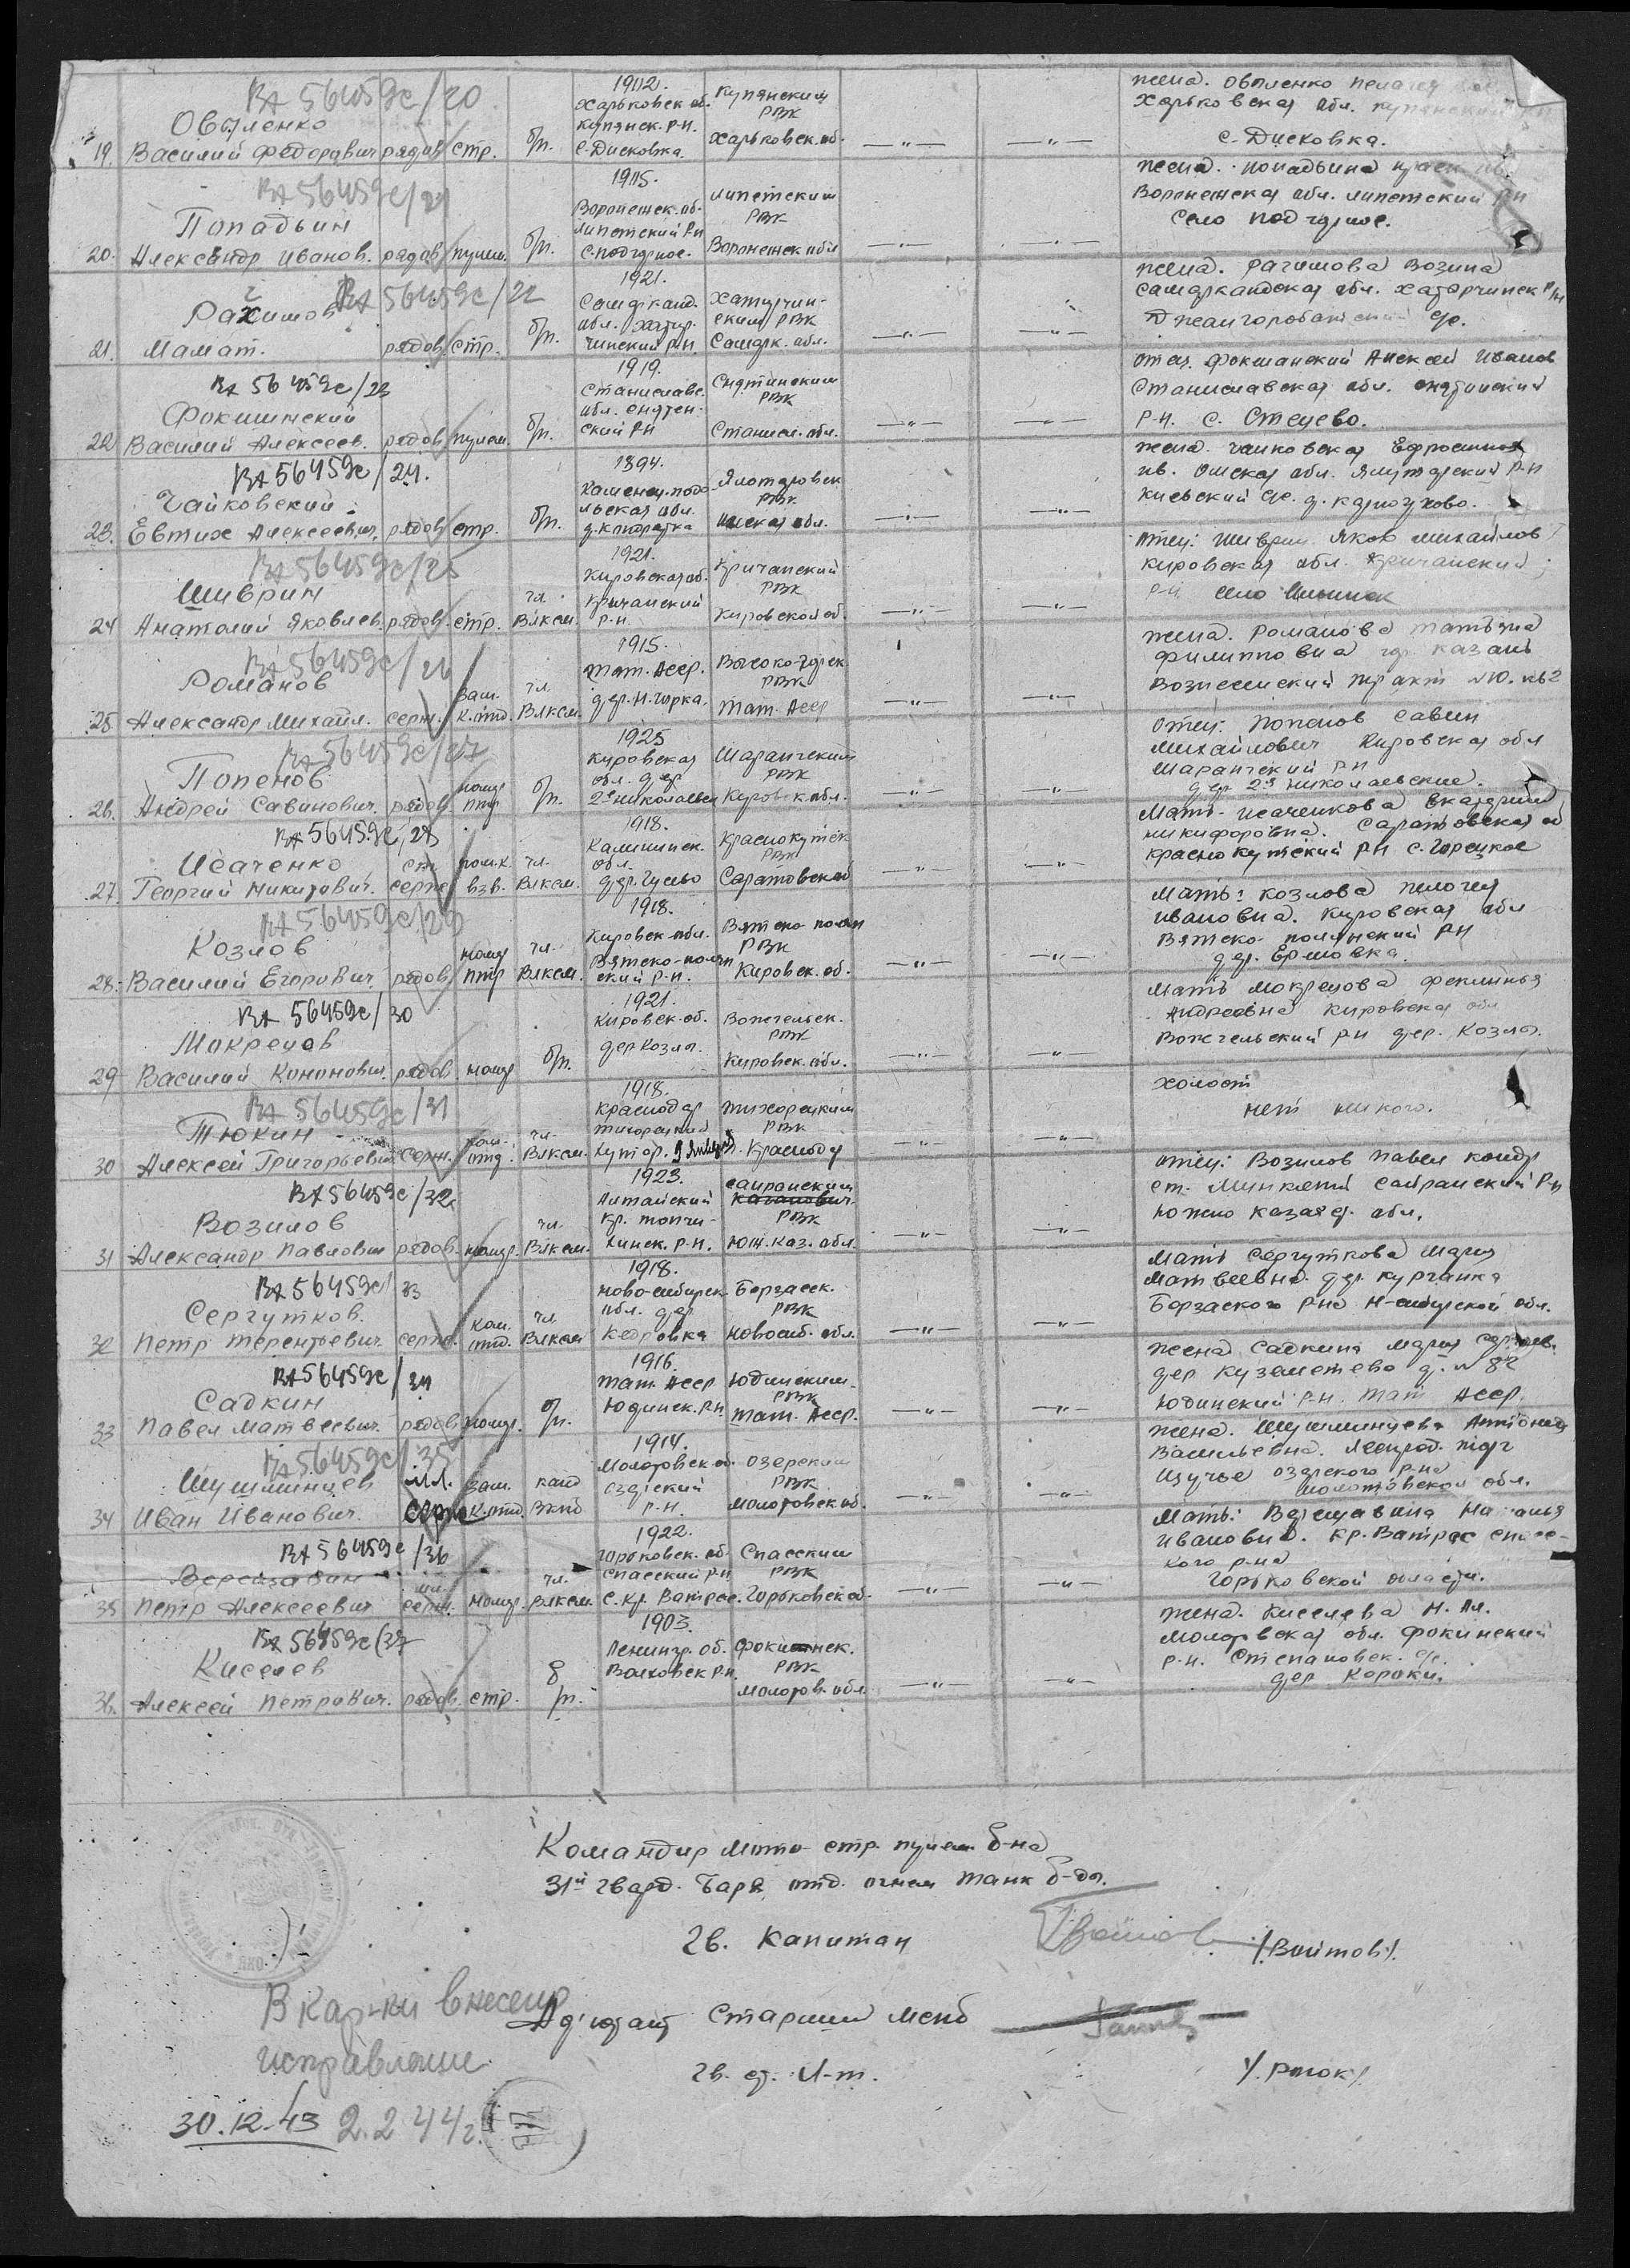 ВА 56459с/20
Овпленко
19. Василий Федорович рядов. стр. б/п.
1902. Харьковск. об. Купянск. р-н. с. Дисковка.
Купянским РВК Харьковск. об.
—"— —"—
жена. Овпленко Пелагея
Харьковская обл. Купянский р-н
с. Дисковка.
ВА 56459с/21
Попадьин
20. Александр Иванов. рядов. пулем. б/п.
1905. Воронежск. об. Липетский р-н с. Подгорное.
Липетским РВК Воронежск. обл
—"— —"—
жена. Попадьина
Воронежская обл. Липетский р-н
село Подгорное.
ВА 56459с/22
Рахимов
21. Мамат. рядов. стр. б/п.
1921. Самарканд. обл. Хатырчинский р-н.
Хатырчинским РВК Самарк. обл.
—"— —"—
жена. Рагимова Возина
Самаркандская обл. Хатарчинск р/н
с/с.
ВА 56459с/23
Фокшинский
22 Василий Алексеев. рядов. пулем. б/п.
1919. Станиславс. обл. Снятенский р-н
Снятинским РВК Станисл. обл.
—"— —"—
отец. Фокшанский Алексей Иванов
Станиславская обл. Снятинский
р-н. с. Стецево.
ВА 56459с/24.
Чайковский
23. Евтих Алексеевич. рядов. стр. б/п.
1894. Каменец-Подольская обл.
Ялотуровск РВК Омская обл.
—"— —"—
жена. Чайковская Ефросиния
ив. Омская обл. Ялуторский р-н
Киевский с/с. д. Карпухово.
ВА 56459с/25
Шиврин
24 Анатолий Яковлев. рядов. стр. чл. ВЛКСМ.
1921. Кировская об. Кричанский р-н.
Кричанский РВК Кировской об.
—"— —"—
отец: Шиврин Яков Михайлов
Кировская обл. Кричанский
р-н село
ВА 56459с/26
Романов
25 Александр Михайл. серж. зам. к. отд. чл. ВЛКСМ.
1915. Тат. АССР. дер. Н. Горка.
Высоко-Горск РВК Тат. АССР
—"— —"—
жена. Романова Татьяна
Филипповна гор. Казань
Вознесенский тракт №10. кв 2
ВА 56459с/27
Попенов
26. Андрей Савинович. рядов. номер птр б/п.
1925 Кировская обл. дер. 2е Николаевск
Шарангским РВК Кировск. обл.
—"— —"—
отец: Попенов Савин
Михайлович Кировская обл
Шарангский р-н
дер. 2е Николаевские.
ВА 56459с/28
Исаченко
27. Георгий Никитович. ст. серж. пом. к. взв. чл. ВЛКСМ.
1918. Калининск. обл. дер. Гусево
Краснокутск РВК Саратовской
—"—
Мать. Исаченкова Екатерина
Никифоровна. Саратовская об
Краснокутский р-н с. Горецкое
ВА 56459с/29
Козлов
28. Василий Егорович. рядов. номер птр чл. ВЛКСМ.
1918. Кировск. обл. Вятско-полянский р-н.
Вятско-полян РВК Кировск. об.
—"— —"—
Мать: Козлова Пелогея
Ивановна. Кировская обл
Вятско-полянский р-н
дер. Ершовка.
ВА 56459с/30
Мокрецов
29 Василий Кононович. рядов. номер б/п.
1921. Кировск. об. дер Козлы.
Вожгальск. РВК Кировск. обл.
—"— —"—
Мать Мокрецова Феклинья
Андреевна Кировская обл
Вожгальский р-н дер. Козлы.
ВА 56459с/31
Тюкин
30 Алексей Григорьевич Серж. ком. отд. чл. ВЛКСМ.
1918. Краснодар Тихорецкий хутор.
Тихорецким РВК Краснодар
—"— —"—
холост
нет никого.
ВА 56459с/32
Возилов
31 Александр Павлович рядов. номер. чл. ВЛКСМ.
1923. Алтайский кр. Топчихинск. р-н.
Сайрамским Каганович. РВК Юж. Каз. обл.
—"— —"—
отец: Возилов Павел Кондр
ст. Манкент Сайрамский р-н
Южно Казах. обл.
ВА 56459с/33
Сергутков.
32 Петр Терентьевич. серж. ком. отд. чл. ВЛКСМ
1918. Ново-сибирск обл. дер Кедровка
Барзасск. РВК Новосиб. обл.
—"— —"—
Мать Сергуткова Мария
Матвеевна. дер. Курганка
Барзаского р-на Н-сибирской обл.
ВА 56459с/34
Садкин
33 Павел Матвеевич. рядов. номер. б/п.
1916. Тат. АССР Юдинск. р-н
Юдинским РВК Тат. АССР.
—"— —"—
жена Садкина Мария Сергеев.
дер Куземетево д. № 82
Юдинский р-н. Тат АССР.
ВА 56459с/35
Шушминцев
34 Иван Иванович. мл. серж зам. к. отд. канд ВКПб
1914. Молотовской озерский р-н.
Озерским РВК Молотовск об.
—"— —"—
жена. Шушминцева Антонида
Васильевна. Леспрод. торг
Щучье озерского р-на
Молотовской обл.
ВА 56459с/36
Верещавин
35 Петр Алексеевич мл. серж. номер. чл. ВЛКСМ.
1922. Горьковск. об. Спасский р-н с. Кр. Ватрас.
Спасским РВК Горьковск об.
—"— —"—
Мать: Верещавина Наталья
Ивановна. Кр. Ватрас Спасского р-на
Горьковской области.
ВА 56459с/37
Киселев
36. Алексей Петрович. рядов. стр. б/п.
1903. Ленингр. об. Волховск р-н.
Фокинск. РВК Молотов. обл.
—"— —"—
жена. Киселева Н. Ал.
Молотовская обл. Фокинский
р-н. Степановск. с/с.
дер Кораки.
Командир мото-стр. пулем б-на
31й гвард. отд. огнем танк б-ды.
Гв. Капитан /Войтов/.
Адъютант Старший мспб
Гв. ст. л-т.
В кар-ки внесены
исправления
30.12.43 2.2 44 г.